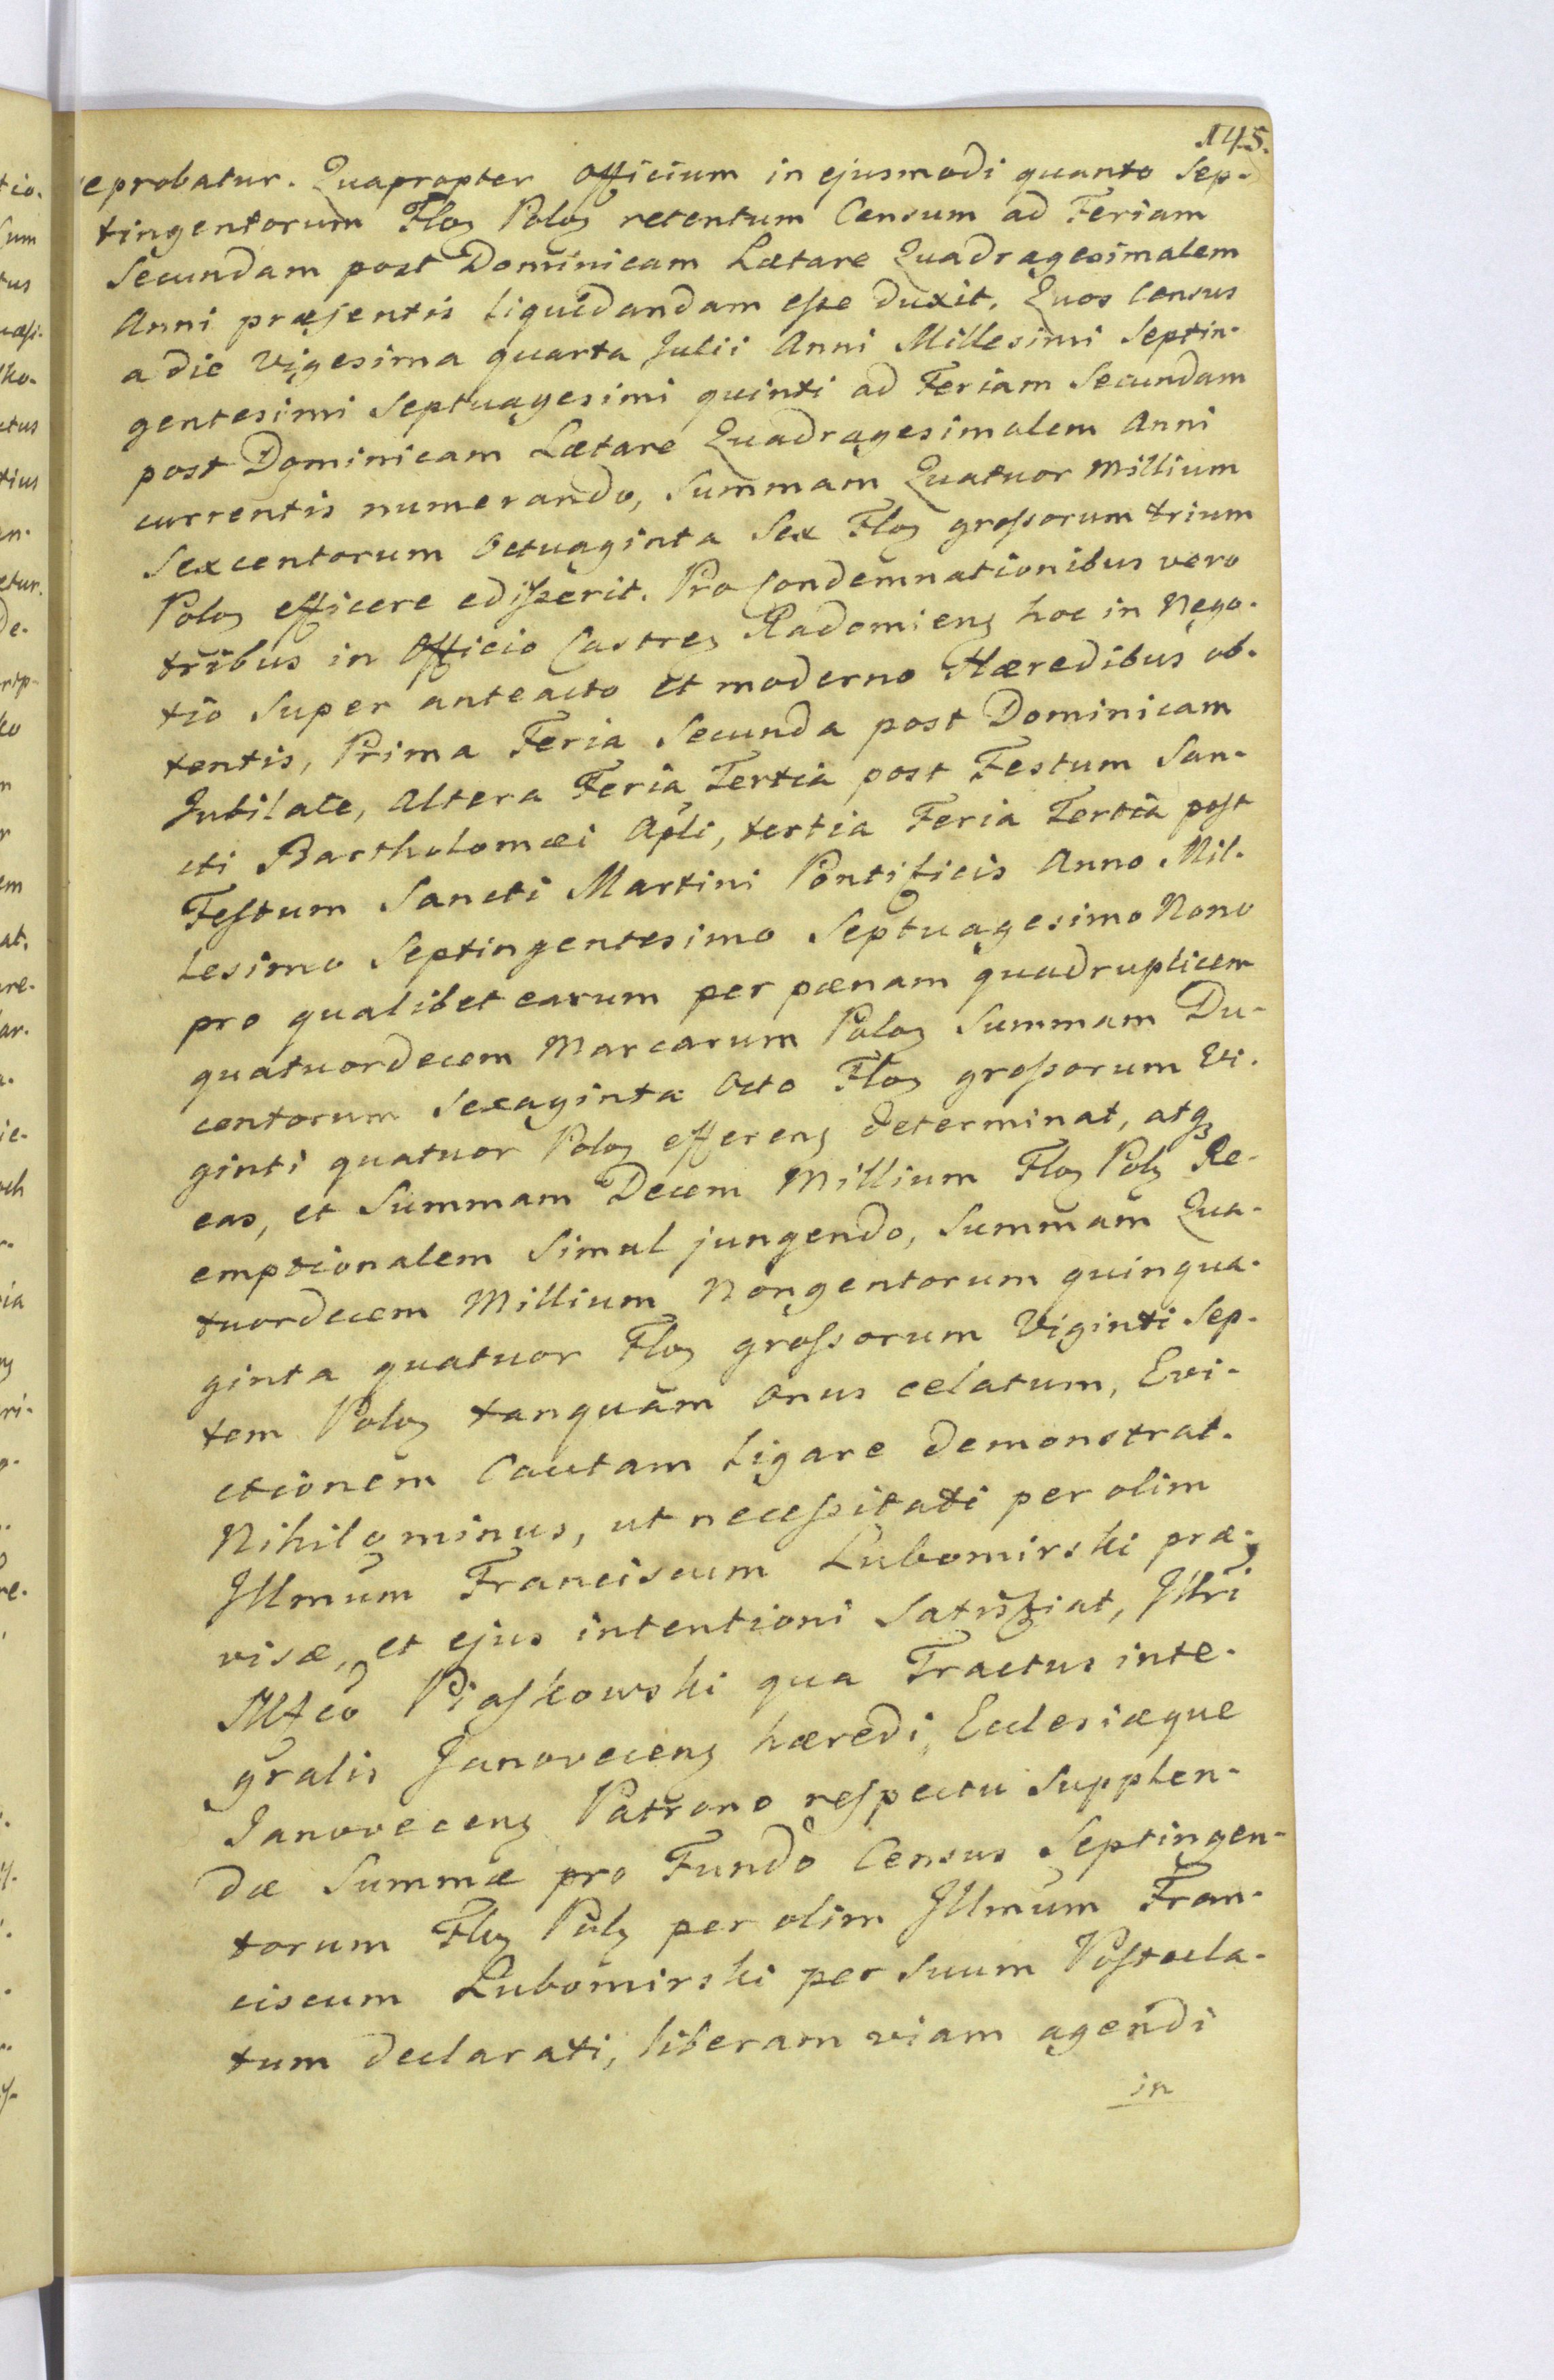 145.
reprobatur. Quapropter Officium in ejusmodi quanto Sep-
tingentorum Floz Poloz retentum Censum ad Feriam
Secundam post Dominicam Lætare Quadragesimalem
Anni præsentis liquidandam esse duxit. Quos Census
a die Vigesima quarta Julii Anni Millesimi Septin-
gentesimi Septuagesimi quinti ad Feriam Secundam
post Dominicam Lætare Quadragesimalem Anni
currentis numerando, Summam Quatuor Millium
Sexcentorum Octuaginta Sex Floz grossorum trium
Poloz efficere edisserit. Pro Condemnationibus vero
tribus in Officio Castrez Radomienz hoc in Nego-
tio Super anteacto et moderno Hæredibus ob-
tentis, Prima Feria Secunda post Dominicam
Jubilate, Altera Feria Tertia post Festum San-
cti Bartholomæi Apli, tertia Feria Tertia post
Festum Sancti Martini Pontificis Anno Mil-
lesimo Septingentesimo Septuagesimo Nono
pro qualibet earum per pænam quadruplicem
quatuordecem Marcarum Poloz Summam Du-
centorum Sexaginta Octo Floz grossorum Vi-
ginti quatuor Poloz efferenz determinat, atqz
eas, et Summam Decem Millium Floz Polz Re-
emptionalem Simul jungendo, Summam Qua-
tuordecem Millium Nongentorum quinqua-
ginta quatuor Floz grossorum Viginti Sep-
tem Poloz tanquam onus celatum, Evi-
ctionem Cautam ligare demonstrat.
Nihilominus, ut necessitati per olim
Illmum Franciscum Lubomirski præ-
visæ, et ejus intentioni Satisfiat, Illri
Mfco Piaskowski qua Tractus inte-
gralis Janovecenz hæredi, Ecclesiæque
Janovecenz Patrono respectu Supplen-
dæ Summæ pro Fundo Census Septingen-
torum Floz Polz per olim Illmum Fran-
ciscum Lubomirski per Suum Postula-
tum declarati, liberam viam agendi
in